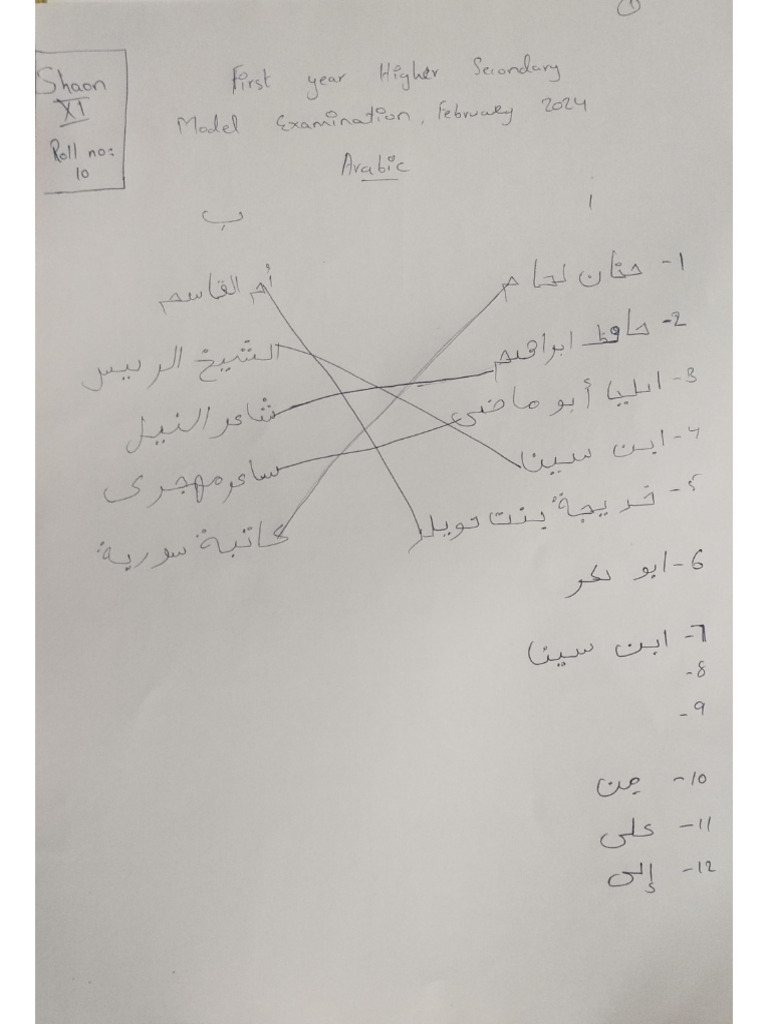 1
Shaon
XI
Roll no:
10
First year Higher Secondary
Model Examination, February 2024
Arabic
أ
ب
1- حنان لحام
أم القاسم
2- حافظ ابراهيم
الشيخ الرئيس
3- ايليا أبو ماضى
شاعر النيل
4- ابن سينا
ساعر مهجرى
5- خديجة بنت خويلد
كاتبة سورية
6- ابو بكر
7- ابن سينا
8-
9-
10- من
11- على
12- إلى